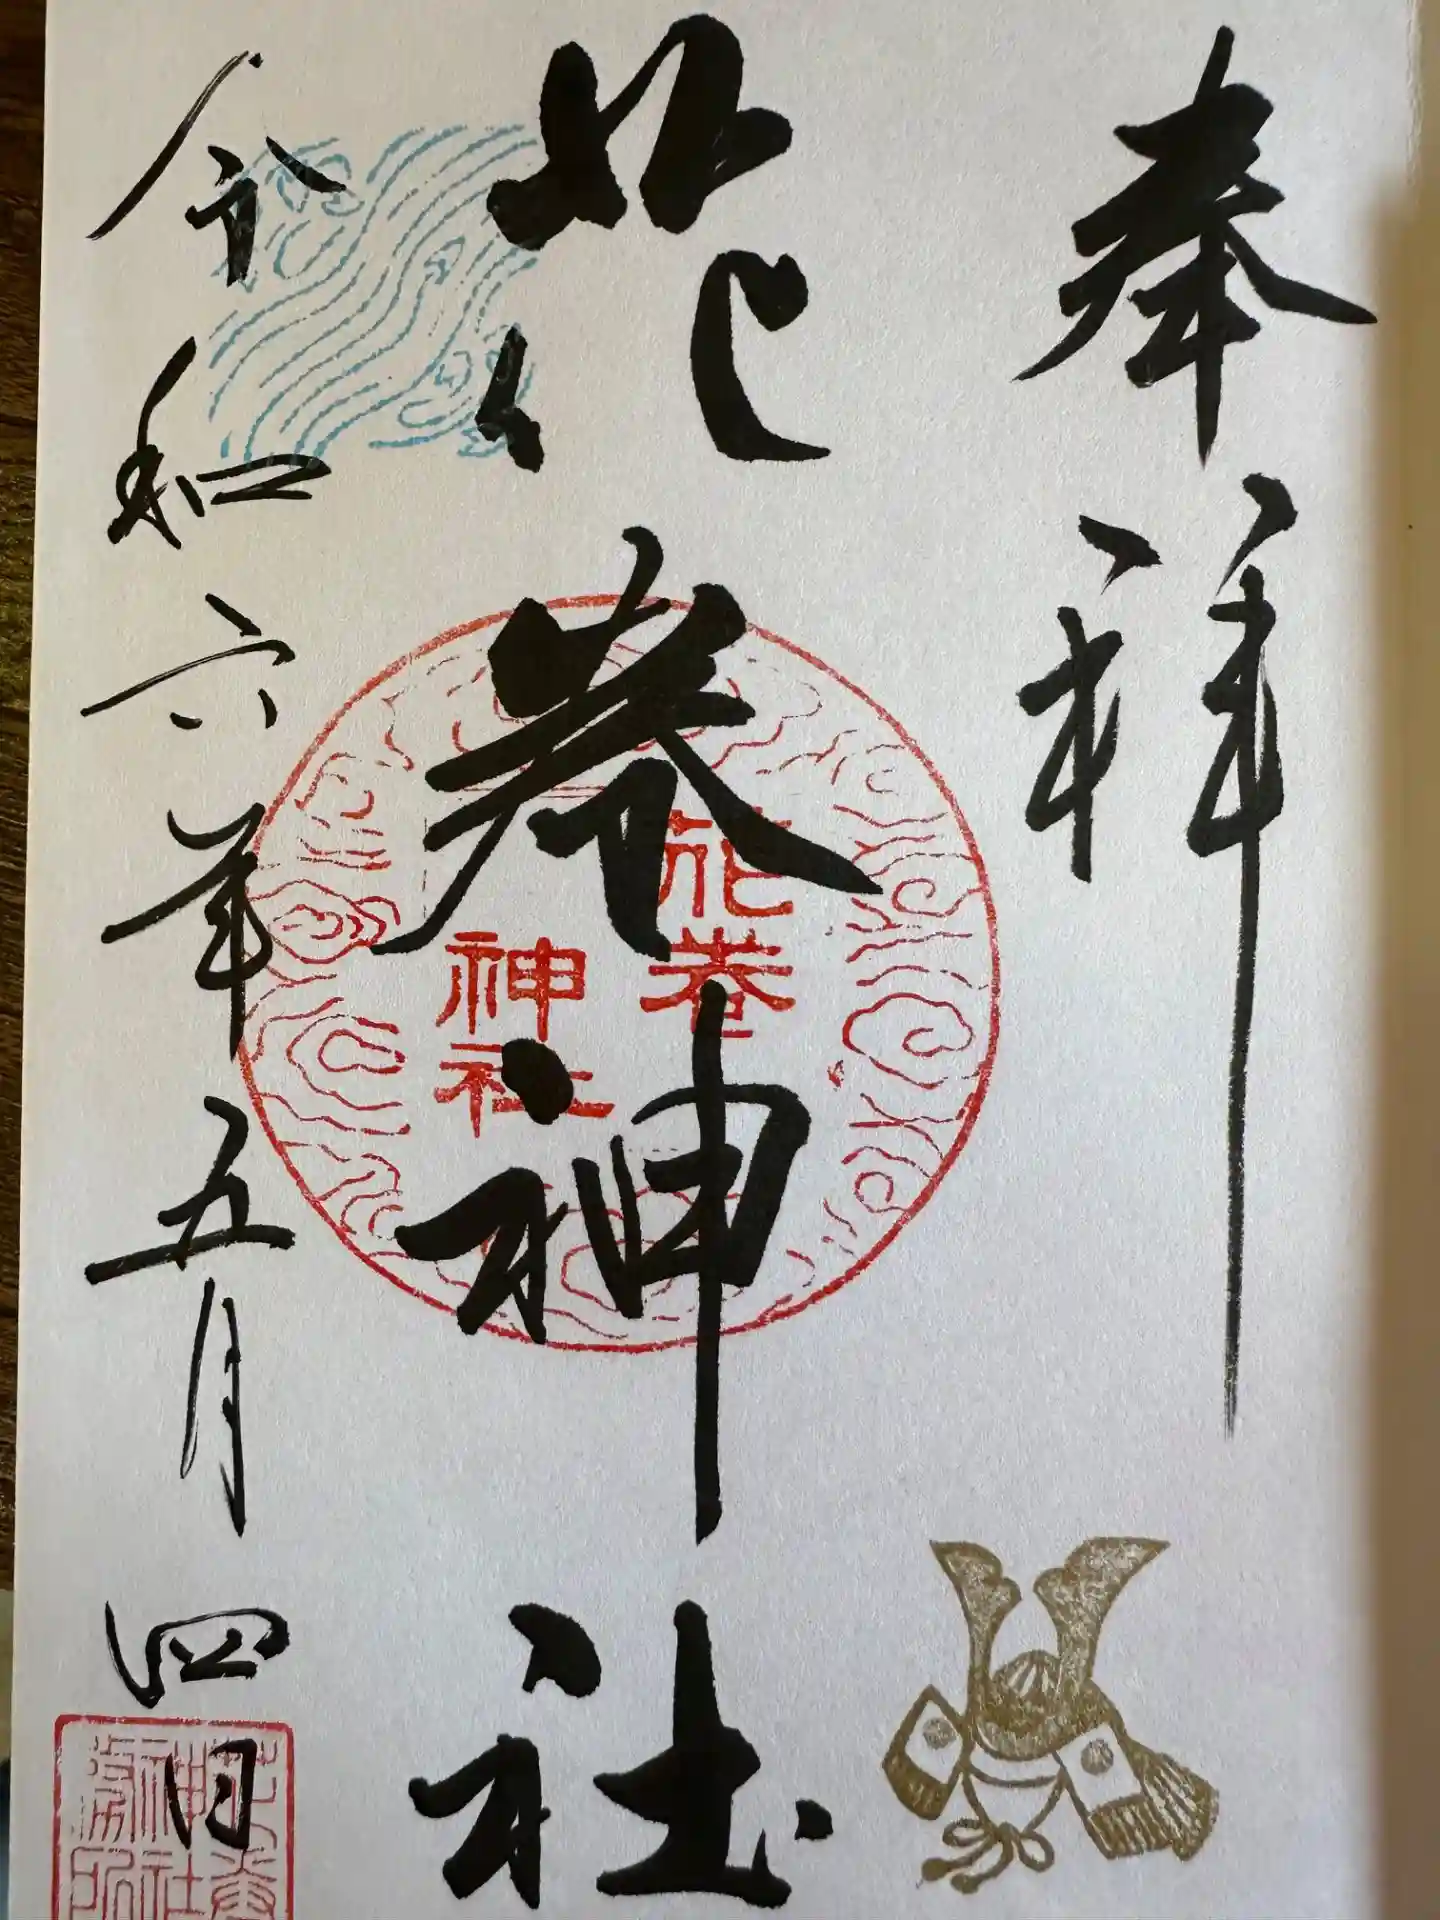 奉拝
花巻神社
花巻
神社
令和六年五月四日
花巻
神社
務所